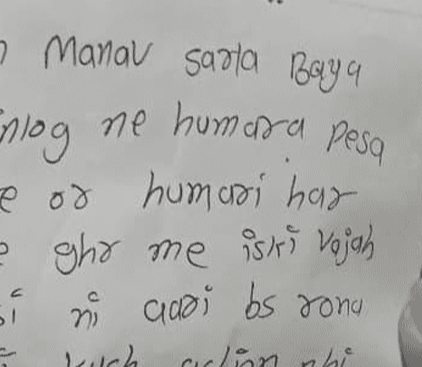 Manav sarla Baya
nlog ne humara pesa
e or humari har
ghr me iski vajah
ni aari bs rona
kuch